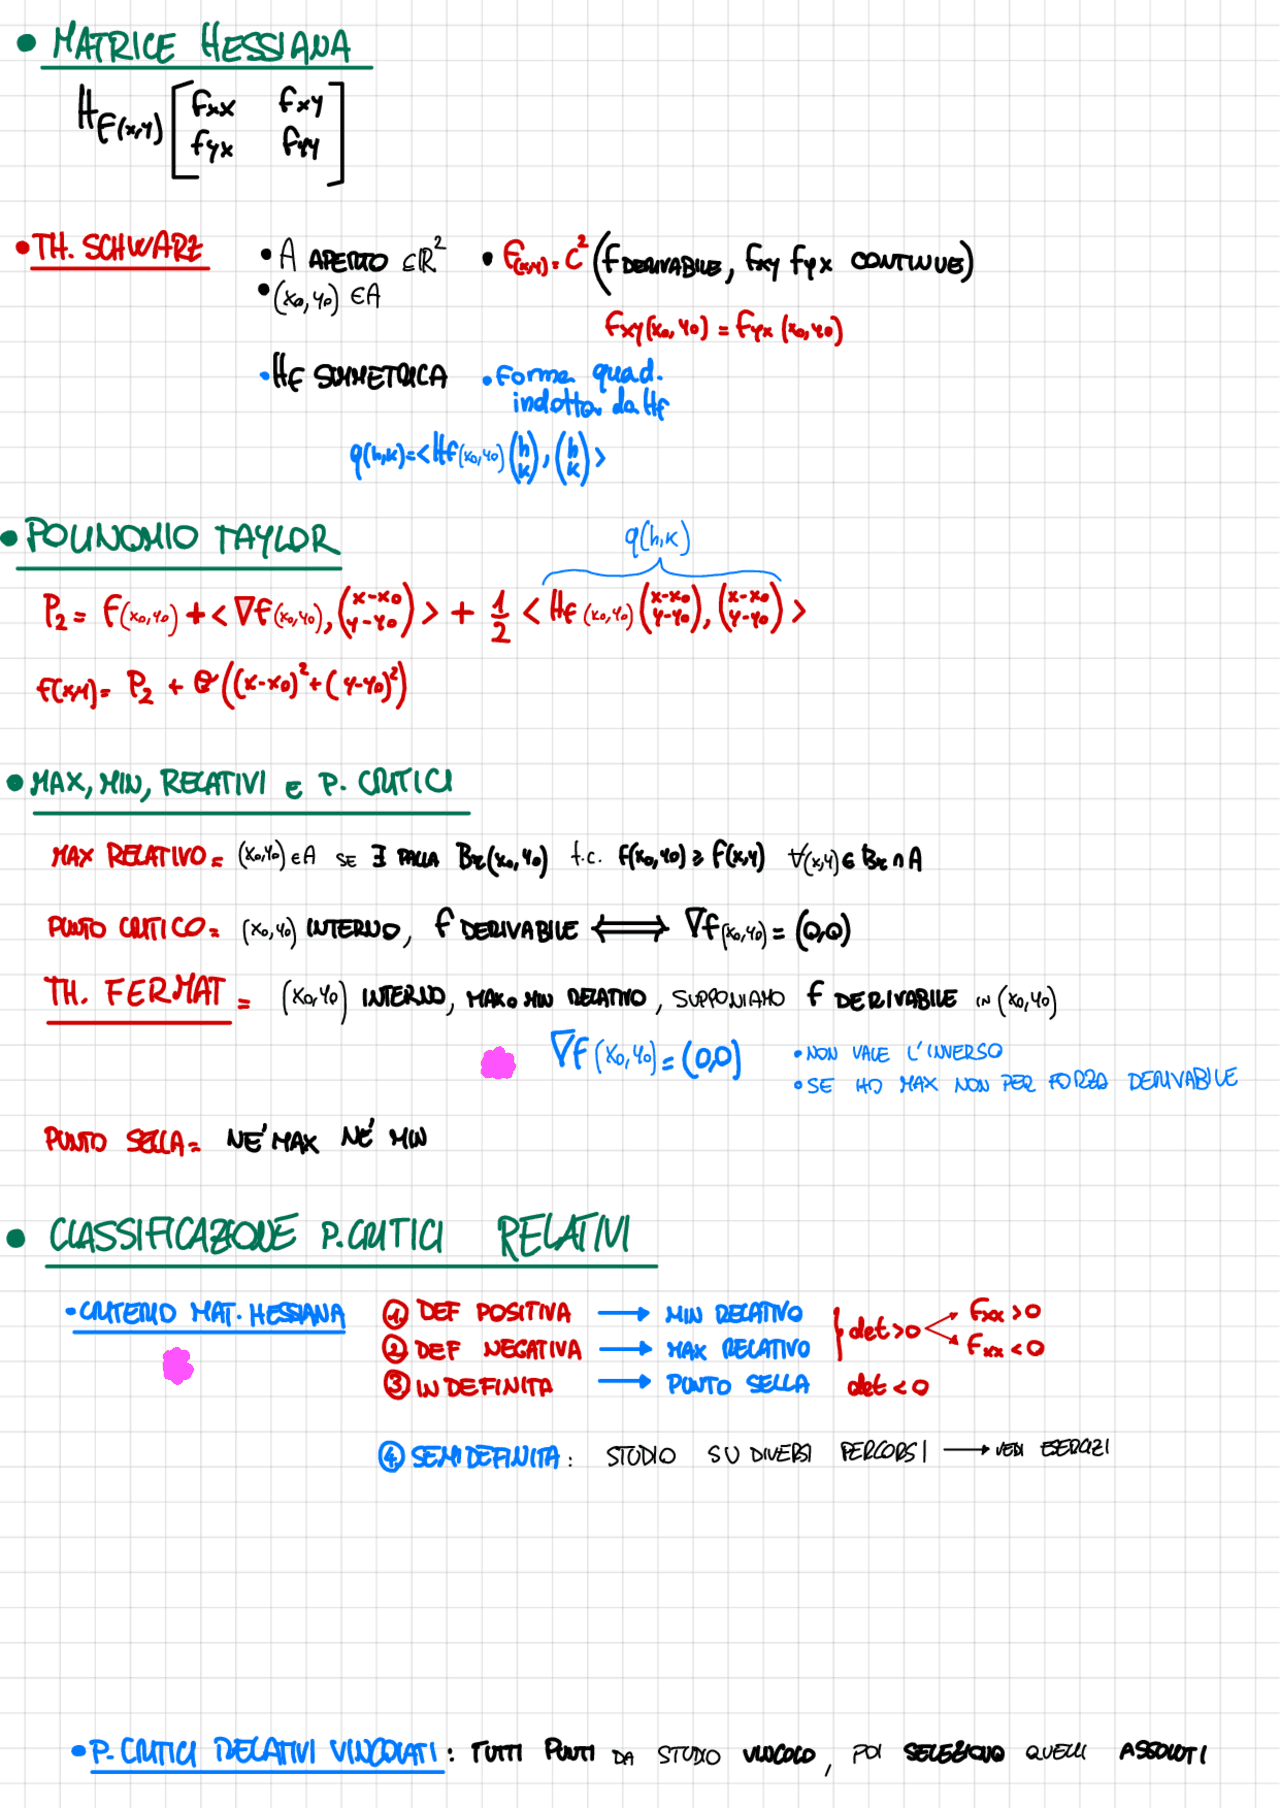 • MATRICE HESSIANA
H F(x,y) [ fxx fxy
fyx fyy ]
• TH. SCHWARZ • A APERTO ⊆ ℝ² • F(x,y) = C² (f DERIVABILE, fxy fyx CONTINUE)
• (x₀,y₀) ∈ A
fxy(x₀,y₀) = fyx(x₀,y₀)
• Hf SIMMETRICA • Forma quad.
indotta da Hf
q(h,k) = < Hf(x₀,y₀) (h k), (h k) >
• POLINOMIO TAYLOR
q(h,k)
P₂ = F(x₀,y₀) + < ∇f(x₀,y₀), (x-x₀ y-y₀) > + 1/2 < Hf(x₀,y₀) (x-x₀ y-y₀), (x-x₀ y-y₀) >
f(x,y) = P₂ + o((x-x₀)² + (y-y₀)²)
• MAX, MIN, RELATIVI E P. CRITICI
MAX RELATIVO = (x₀,y₀) ∈ A SE ∃ PALLA Br(x₀,y₀) t.c. f(x₀,y₀) ≥ f(x,y) ∀(x,y) ∈ Br ∩ A
PUNTO CRITICO = (x₀,y₀) INTERNO, f DERIVABILE ⟺ ∇f(x₀,y₀) = (0,0)
TH. FERMAT = (x₀,y₀) INTERNO, MAX o MIN RELATIVO, SUPPONIAMO f DERIVABILE IN (x₀,y₀)
∇f(x₀,y₀) = (0,0) • NON VALE L'INVERSO
• SE HO MAX NON PER FORZA DERIVABILE
PUNTO SELLA = NE' MAX NE' MIN
• CLASSIFICAZIONE P. CRITICI RELATIVI
• CRITERIO MAT. HESSIANA ① DEF POSITIVA → MIN RELATIVO } det>0 fxx>0
② DEF NEGATIVA → MAX RELATIVO fxx<0
③ INDEFINITA → PUNTO SELLA det<0
④ SEMIDEFINITA: STUDIO SU DIVERSI PERCORSI → VEDI ESERCIZI
• P. CRITICI RELATIVI VINCOLATI: TUTTI PUNTI DA STUDIO VINCOLO, POI SELEZIONO QUELLI ASSOLUTI